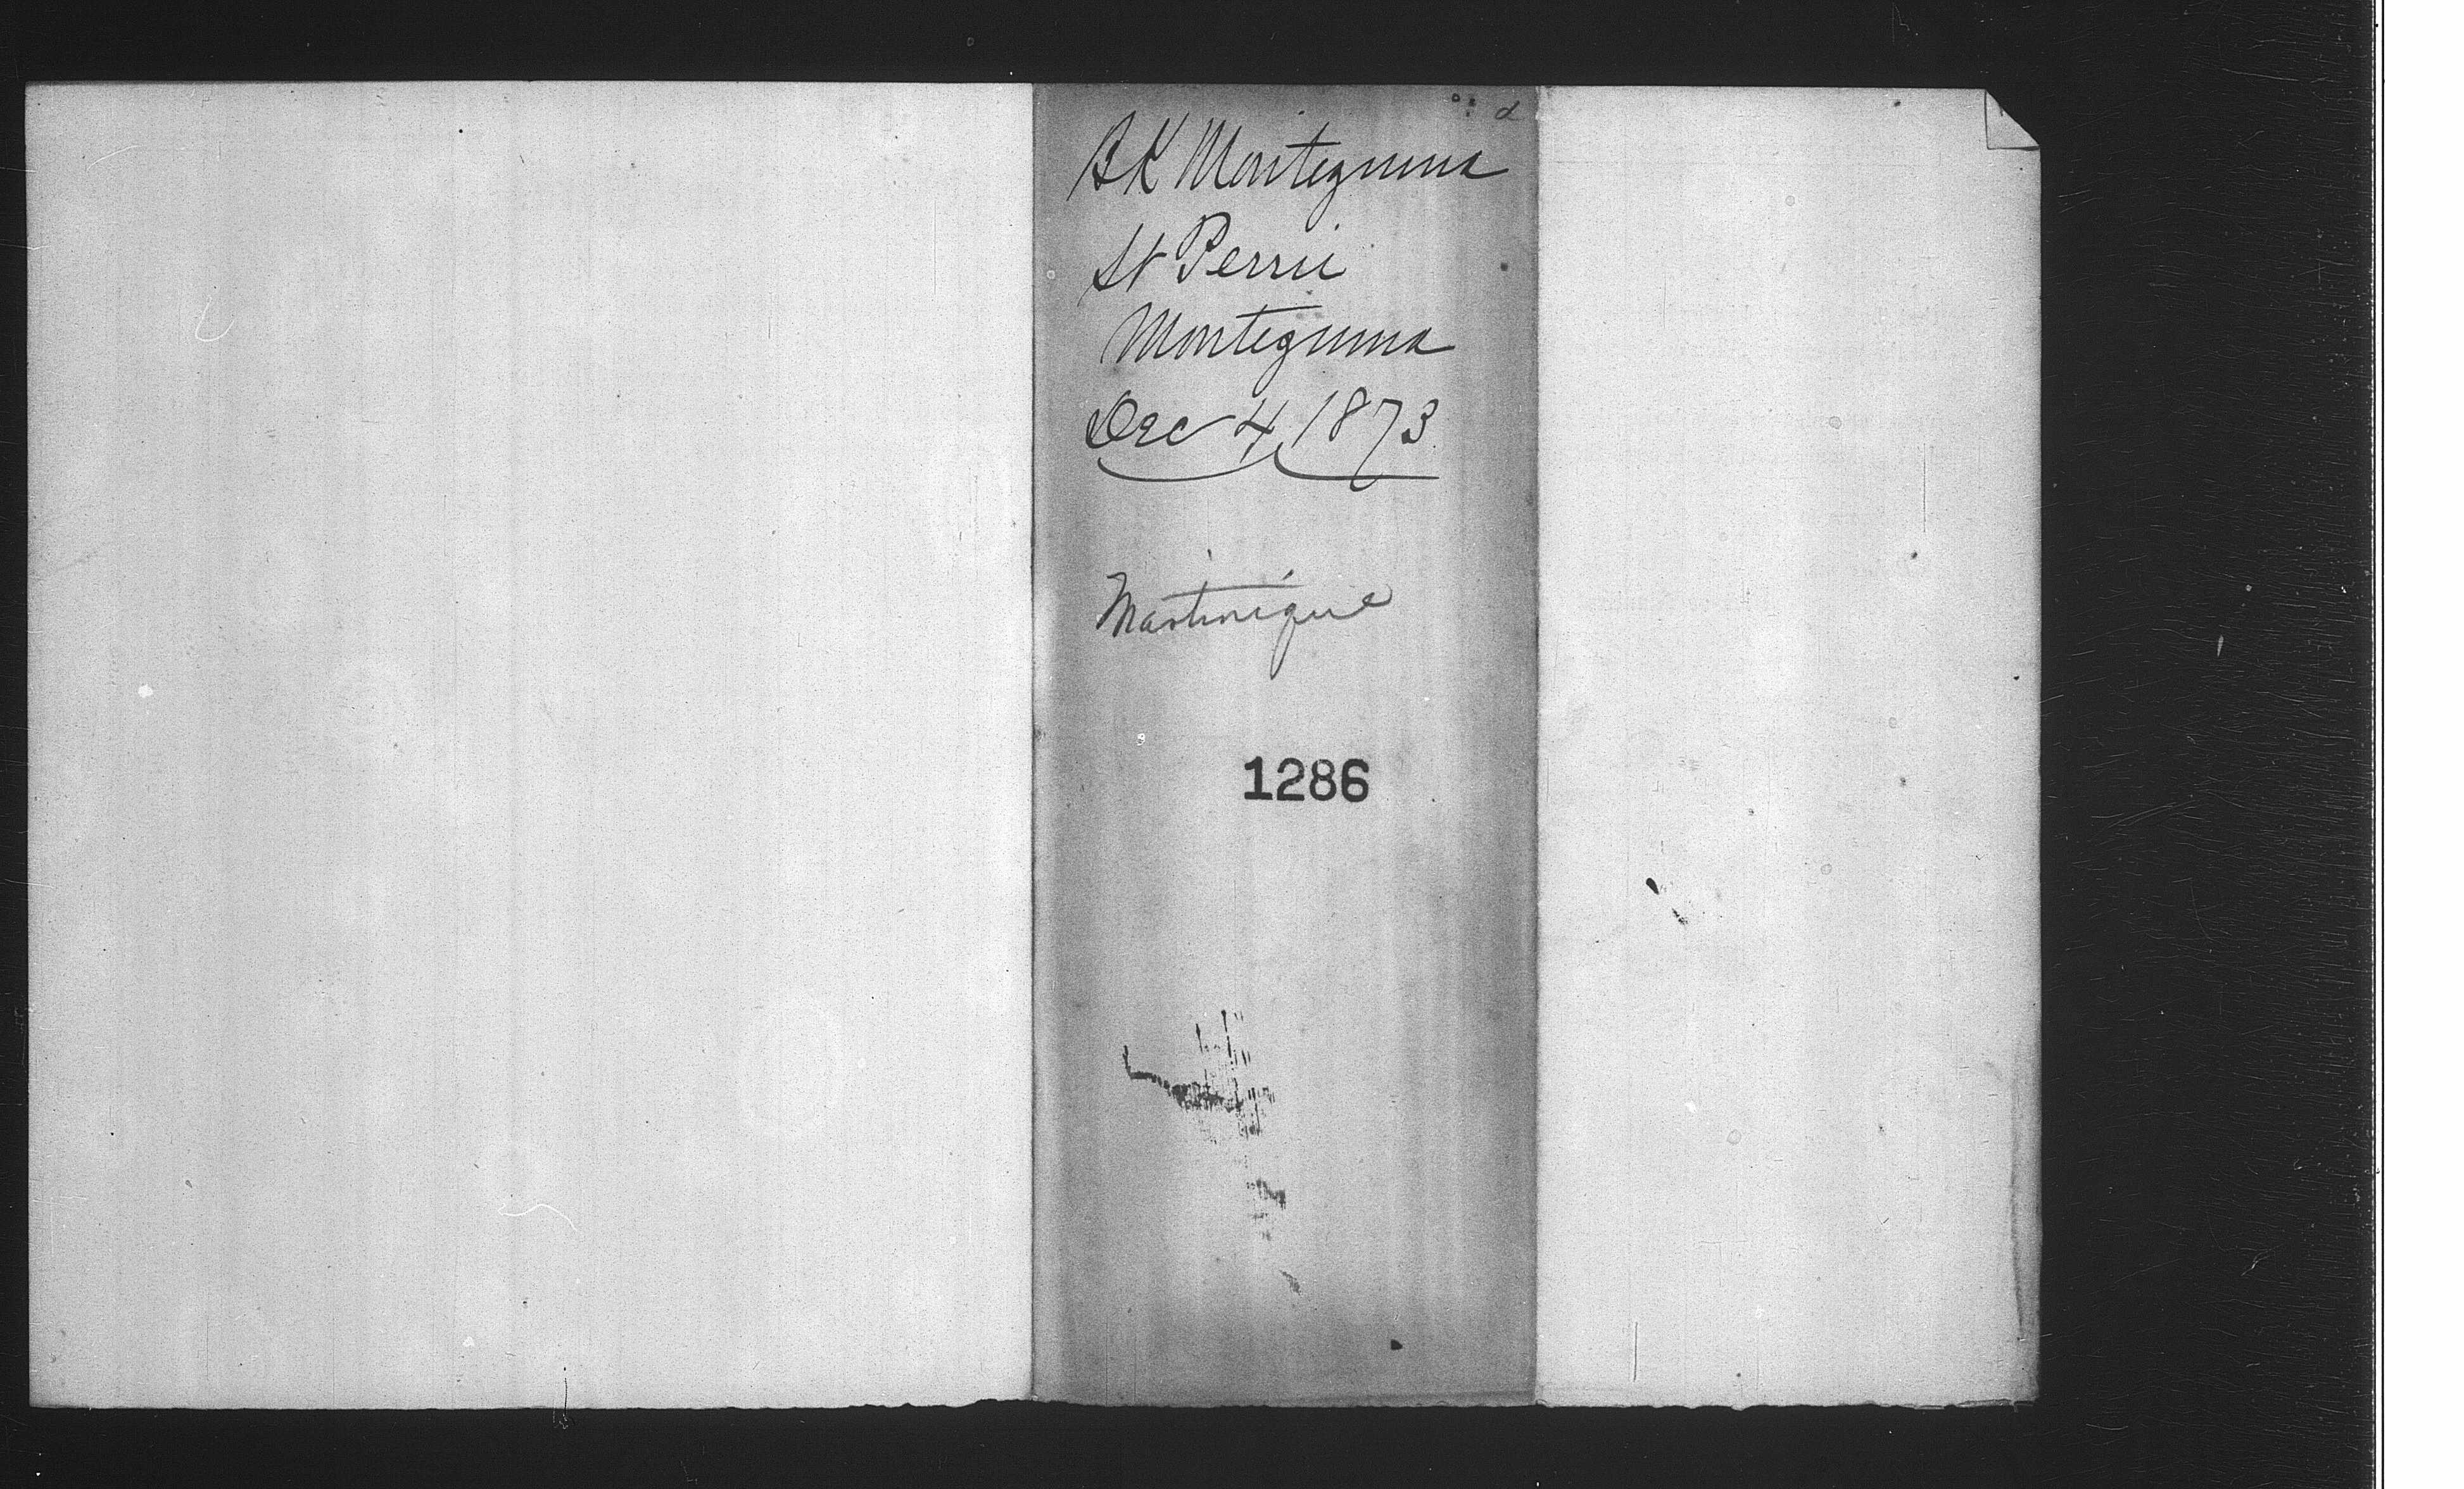 BK Montezuma
St Perrie
Montezuma
Dec 4, 1873
Martinique
1286